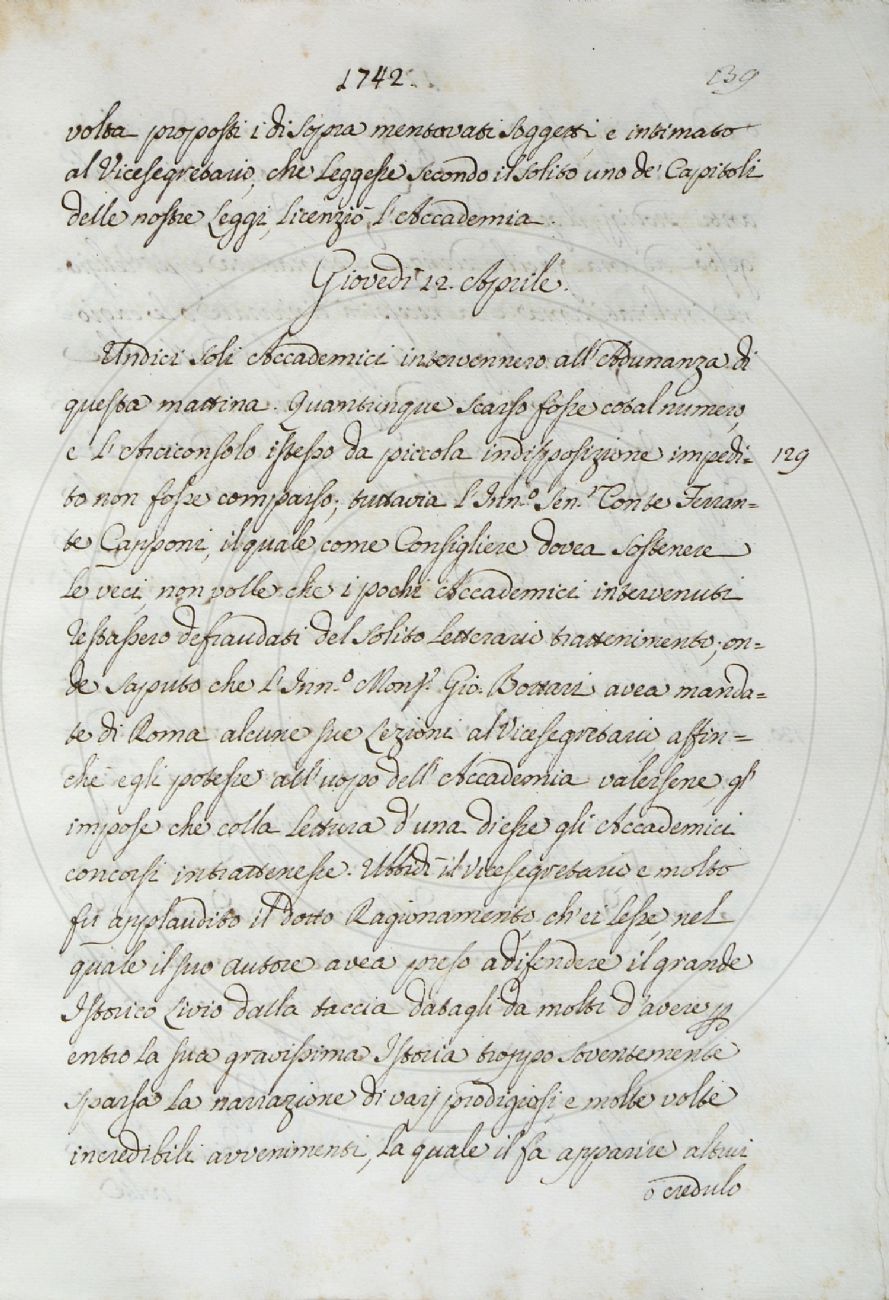 1742.
139
volta proposti i di sopra mentovati soggetti, e intimato
al Vicesegretario, che leggesse secondo il solito uno de' Capitoli
delle nostre Leggi, licenziò l'Accademia.
Giovedì 12. Aprile.
Undici soli Accademici intervennero all'Adunanza di
questa mattina. Quantunque scarso fosse cotal numero,
e l'Arciconsolo istesso da piccola indisposizione impedi=
129
to non fosse comparso; tuttavia l'Inn.º Sen.r Conte Ferran=
te Capponi, il quale come Consigliere dovea sostenere
le veci, non volle che i pochi Accademici intervenuti
restassero defraudati del solito letterario trattenimento; on=
de saputo che l'Inn.º Mons.r Gio. Bottari avea manda=
te di Roma alcune sue Lezioni al Vicesegretario, affin=
chè egli potesse all'uopo dell'Accademia valersene, gl'
impose che colla lettura d'una d'esse gli Accademici
concorsi intrattenesse. Ubbidì il Vicesegretario e molto
fù applaudito il dotto Ragionamento, ch'ei lesse, nel
quale il suo autore avea preso a difendere il grande
Istorico Livio dalla taccia datagli da molti d'avere p
entro la sua gravissima Istoria troppo soventemente
sparsa la narrazione di varj prodigiosi, e molte volte
incredibili avvenimenti, la quale il fa apparire altrui
o credulo